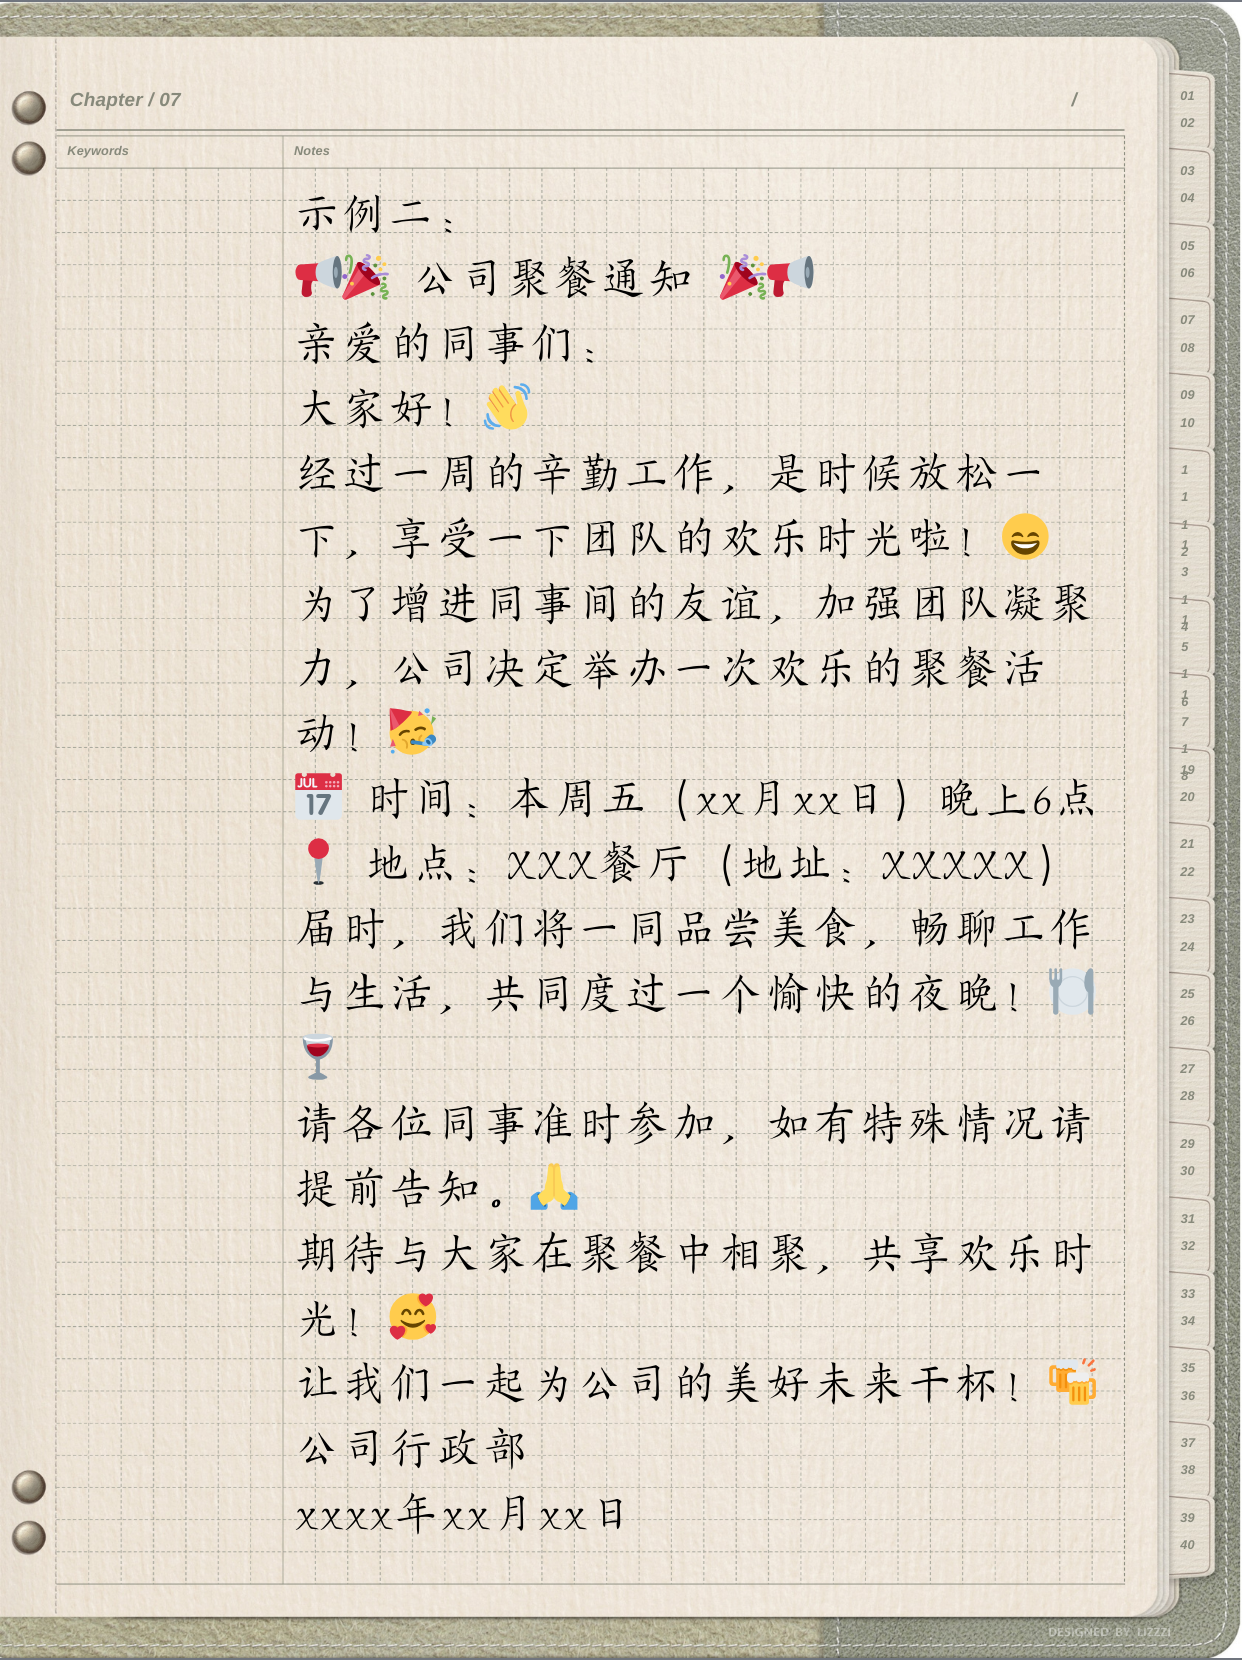 Chapter / 07
/
Keywords
Notes
示例二：
📢🎉 公司聚餐通知 🎉📢
亲爱的同事们：
大家好！👋
经过一周的辛勤工作，是时候放松一
下，享受一下团队的欢乐时光啦！😄
为了增进同事间的友谊，加强团队凝聚
力，公司决定举办一次欢乐的聚餐活
动！🥳
📅 时间：本周五（xx月xx日）晚上6点
📍 地点：XXX餐厅（地址：XXXXX）
届时，我们将一同品尝美食，畅聊工作
与生活，共同度过一个愉快的夜晚！🍽️
🍷
请各位同事准时参加，如有特殊情况请
提前告知。🙏
期待与大家在聚餐中相聚，共享欢乐时
光！🥰
让我们一起为公司的美好未来干杯！🍻
公司行政部
xxxx年xx月xx日
01
02
03
04
05
06
07
08
09
10
20
21
22
23
24
25
26
27
28
29
30
31
32
33
34
35
36
37
38
39
40
DESIGNED BY LIZZZI